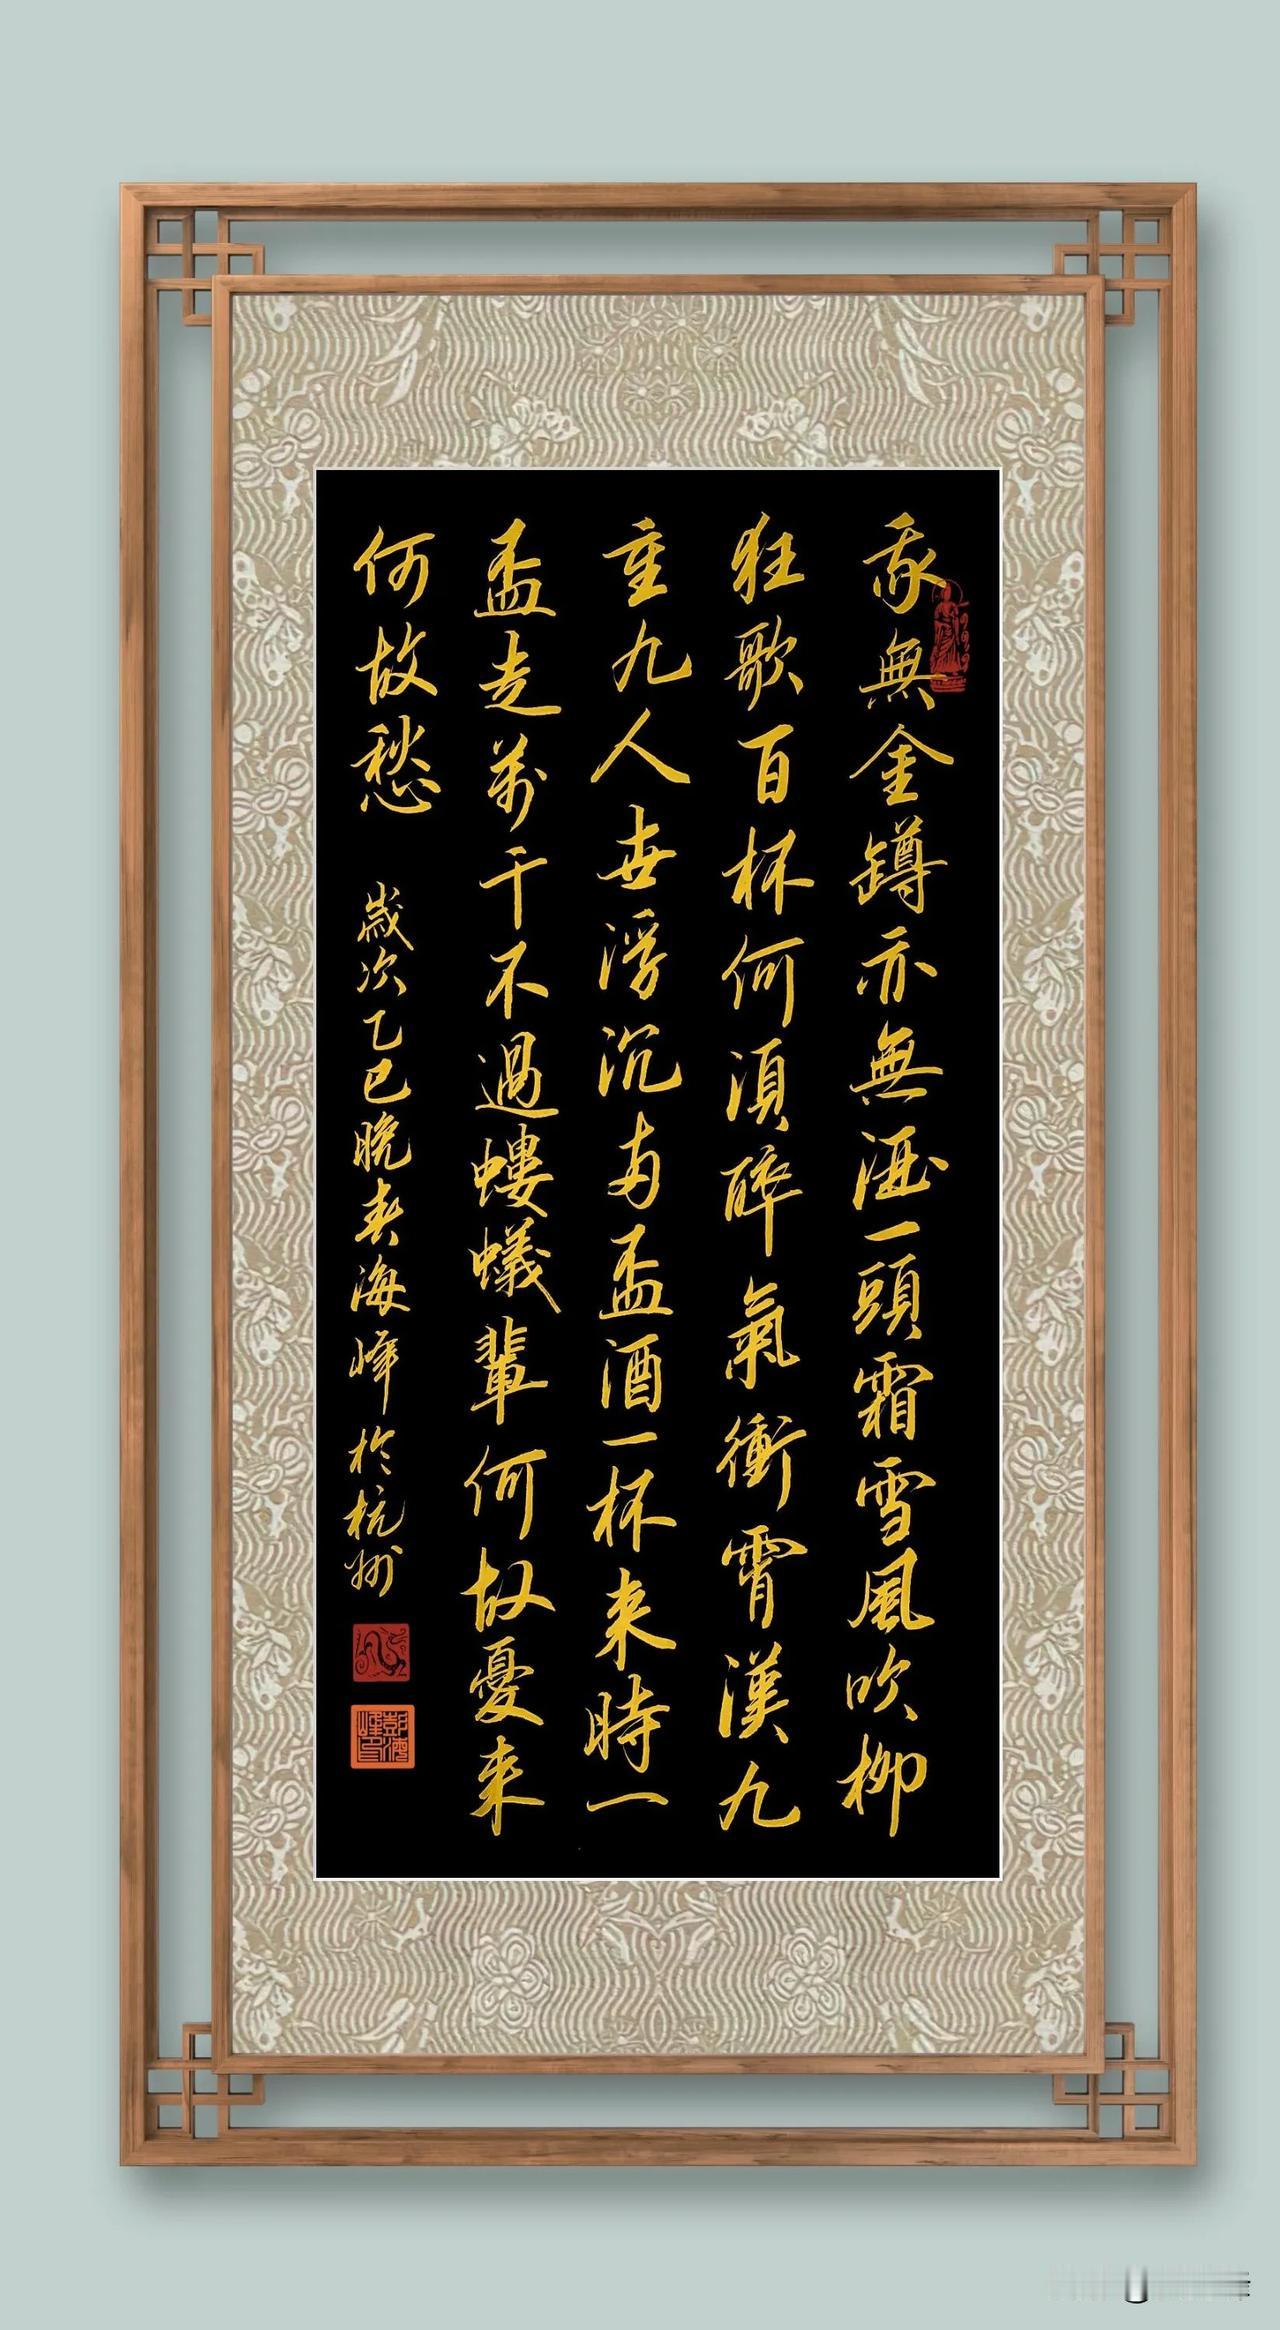 我無金鐏亦無一頭霜雪風吹柳
狂歌百杯何須醉氣衝霄漢九
重九人世浮沉兩盃酒一杯来時一
盃走萬千不過螻蟻輩何故憂来
何故愁
歲次乙巳晚春海峰於杭州
彭海峰印